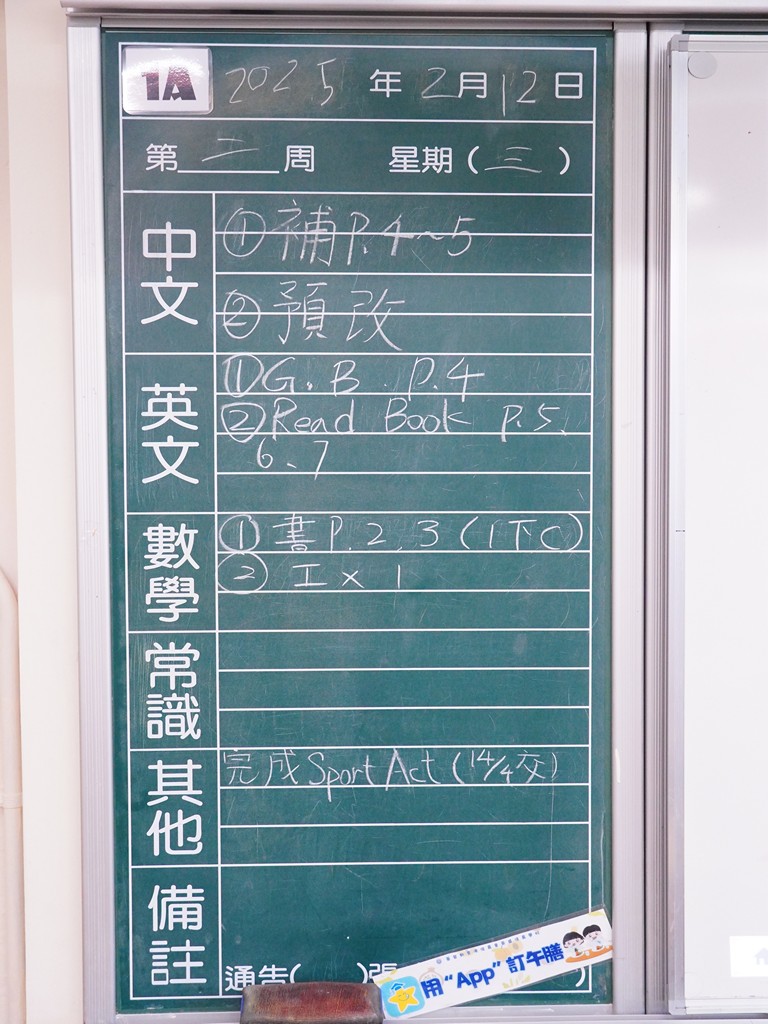 1A 2025年2月12日
第二周 星期(三)
中文
①補P.4~5
②預改
英文
①G.B. P.4
②Read Book P.5、
6、7
數學
①書P.2,3(1下C)
② 工x1
常識
其他
完成Sport Act(14/4交)
備註
通告( )張
用“App”訂午膳